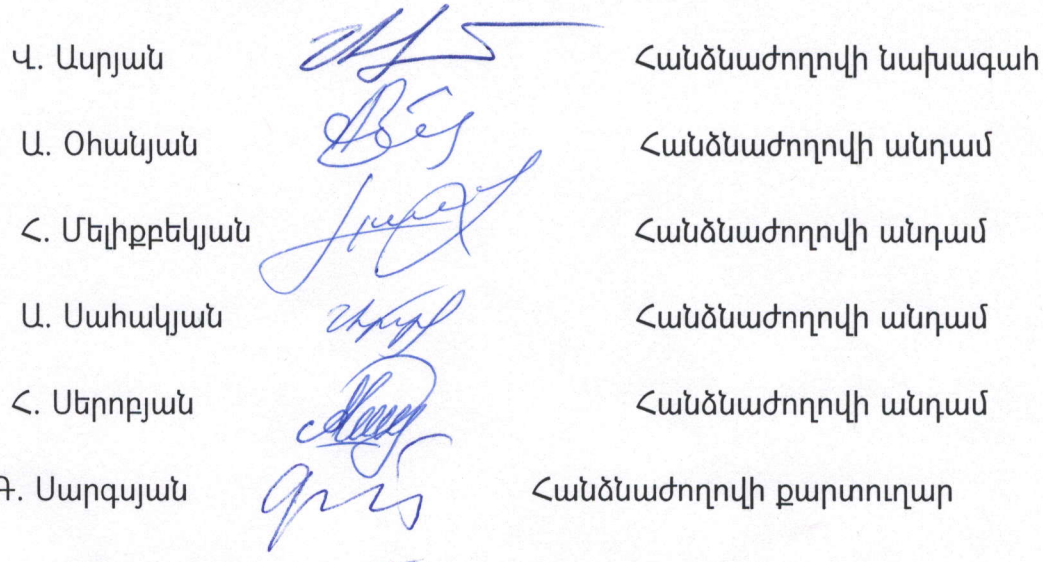 Վ. Ասրյան Հանձնաժողովի նախագահ
Ա. Օհանյան Հանձնաժողովի անդամ
Հ. Մելիքբեկյան Հանձնաժողովի անդամ
Ա. Սահակյան Հանձնաժողովի անդամ
Հ. Սերոբյան Հանձնաժողովի անդամ
Գ. Սարգսյան Հանձնաժողովի քարտուղար